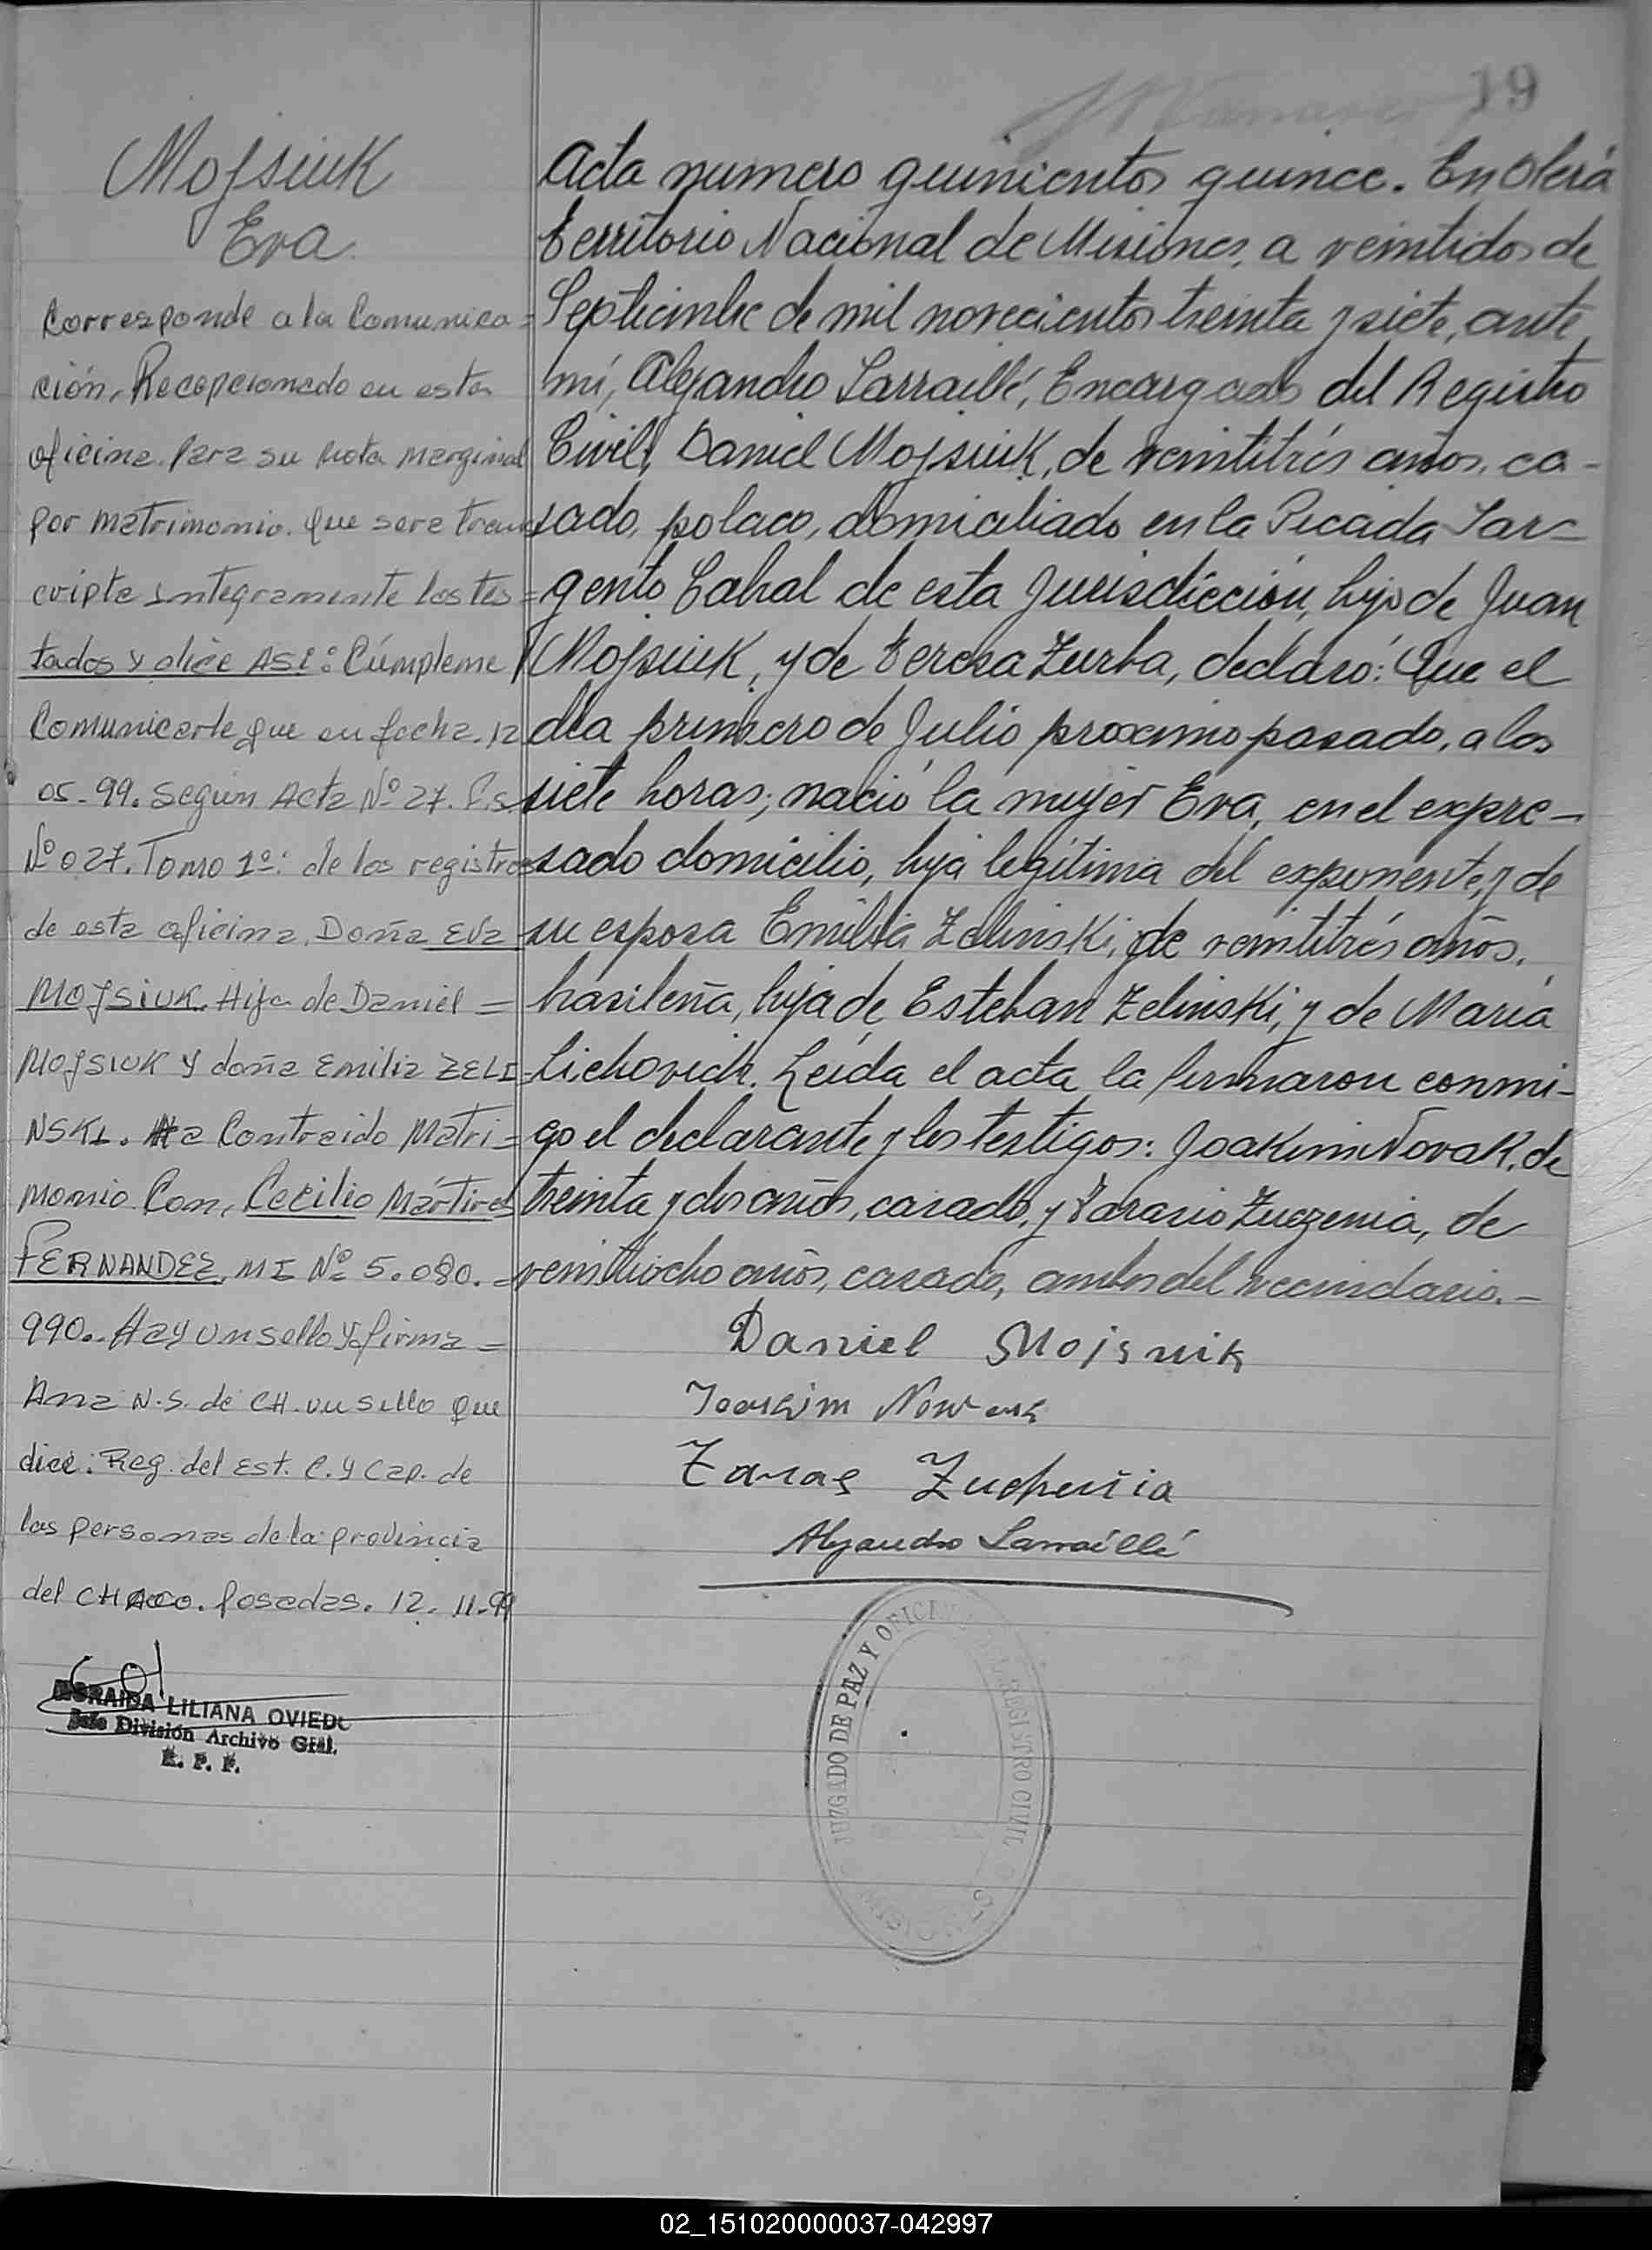 19
Mojsiuk
Eva
Corresponde a la Comunica=
ción, Recepcionado en esta
oficina. Para su Nota Marginal
por matrimonio. que sera trans
cripta integramente los tes=
tados y dice ASI: Cúmpleme
Comunicarle que en fecha. 12
05-99. Según Acta Nº 27. Fs.
Nº 027. Tomo 1º: de los registros
de esta oficina. Doña Eva
MOJSIUK. Hija de Daniel =
MOJSIUK y doña Emilia ZELI
NSKI. Ha Contraido Matri=
monio Con, Cecilio Mártires
FERNANDEZ, MI Nº 5.080.=
990.- Hay un sello y firma =
Ana N.S. de CH. un sello que
dice: Reg. del Est. C. y Cap. de
las personas de la provincia
del CHACO. Posadas. 12. 11-99
LILIANA OVIEDO
Jefe División Archivo Gral.
R. P. P.
Acta numero quinientos quince. En Oberá
Territorio Nacional de Misiones, a veintidos de
Septiembre de mil novecientos treinta y siete, ante
mí, Alejandro Larraillé, Encargado del Registro
Civil, Daniel Mojsiuk, de veintitrés años, ca-
sado, polaco, domiciliado en la Picada Sar-
gento Cabal de esta Jurisdicción, hijo de Juan
Mojsiuk, y de Teresa Zurba, declaró: Que el
día primero de Julio proximo pasado, a las
siete horas; nació la mujer Eva, en el expre-
sado domicilio, hija legítima del exponente, y de
su esposa Emilia Zelinski, de veintitrés años,
brasileña, hija de Esteban Zelinski, y de María
Lichovich. Leída el acta la firmaron conmi-
go el declarante y los testigos: Joakim Novak, de
treinta y dos años, casado, y Tarasio Zugzenia, de
veintiocho años, casado, ambos del vecindario.-
Daniel Mojsiuk
Joakim Nowak
Taras Zuchenia
Alejandro Larraillé
JUZGADO DE PAZ Y OFICINA DEL REGISTRO CIVIL
MISIONES
02_151020000037-042997